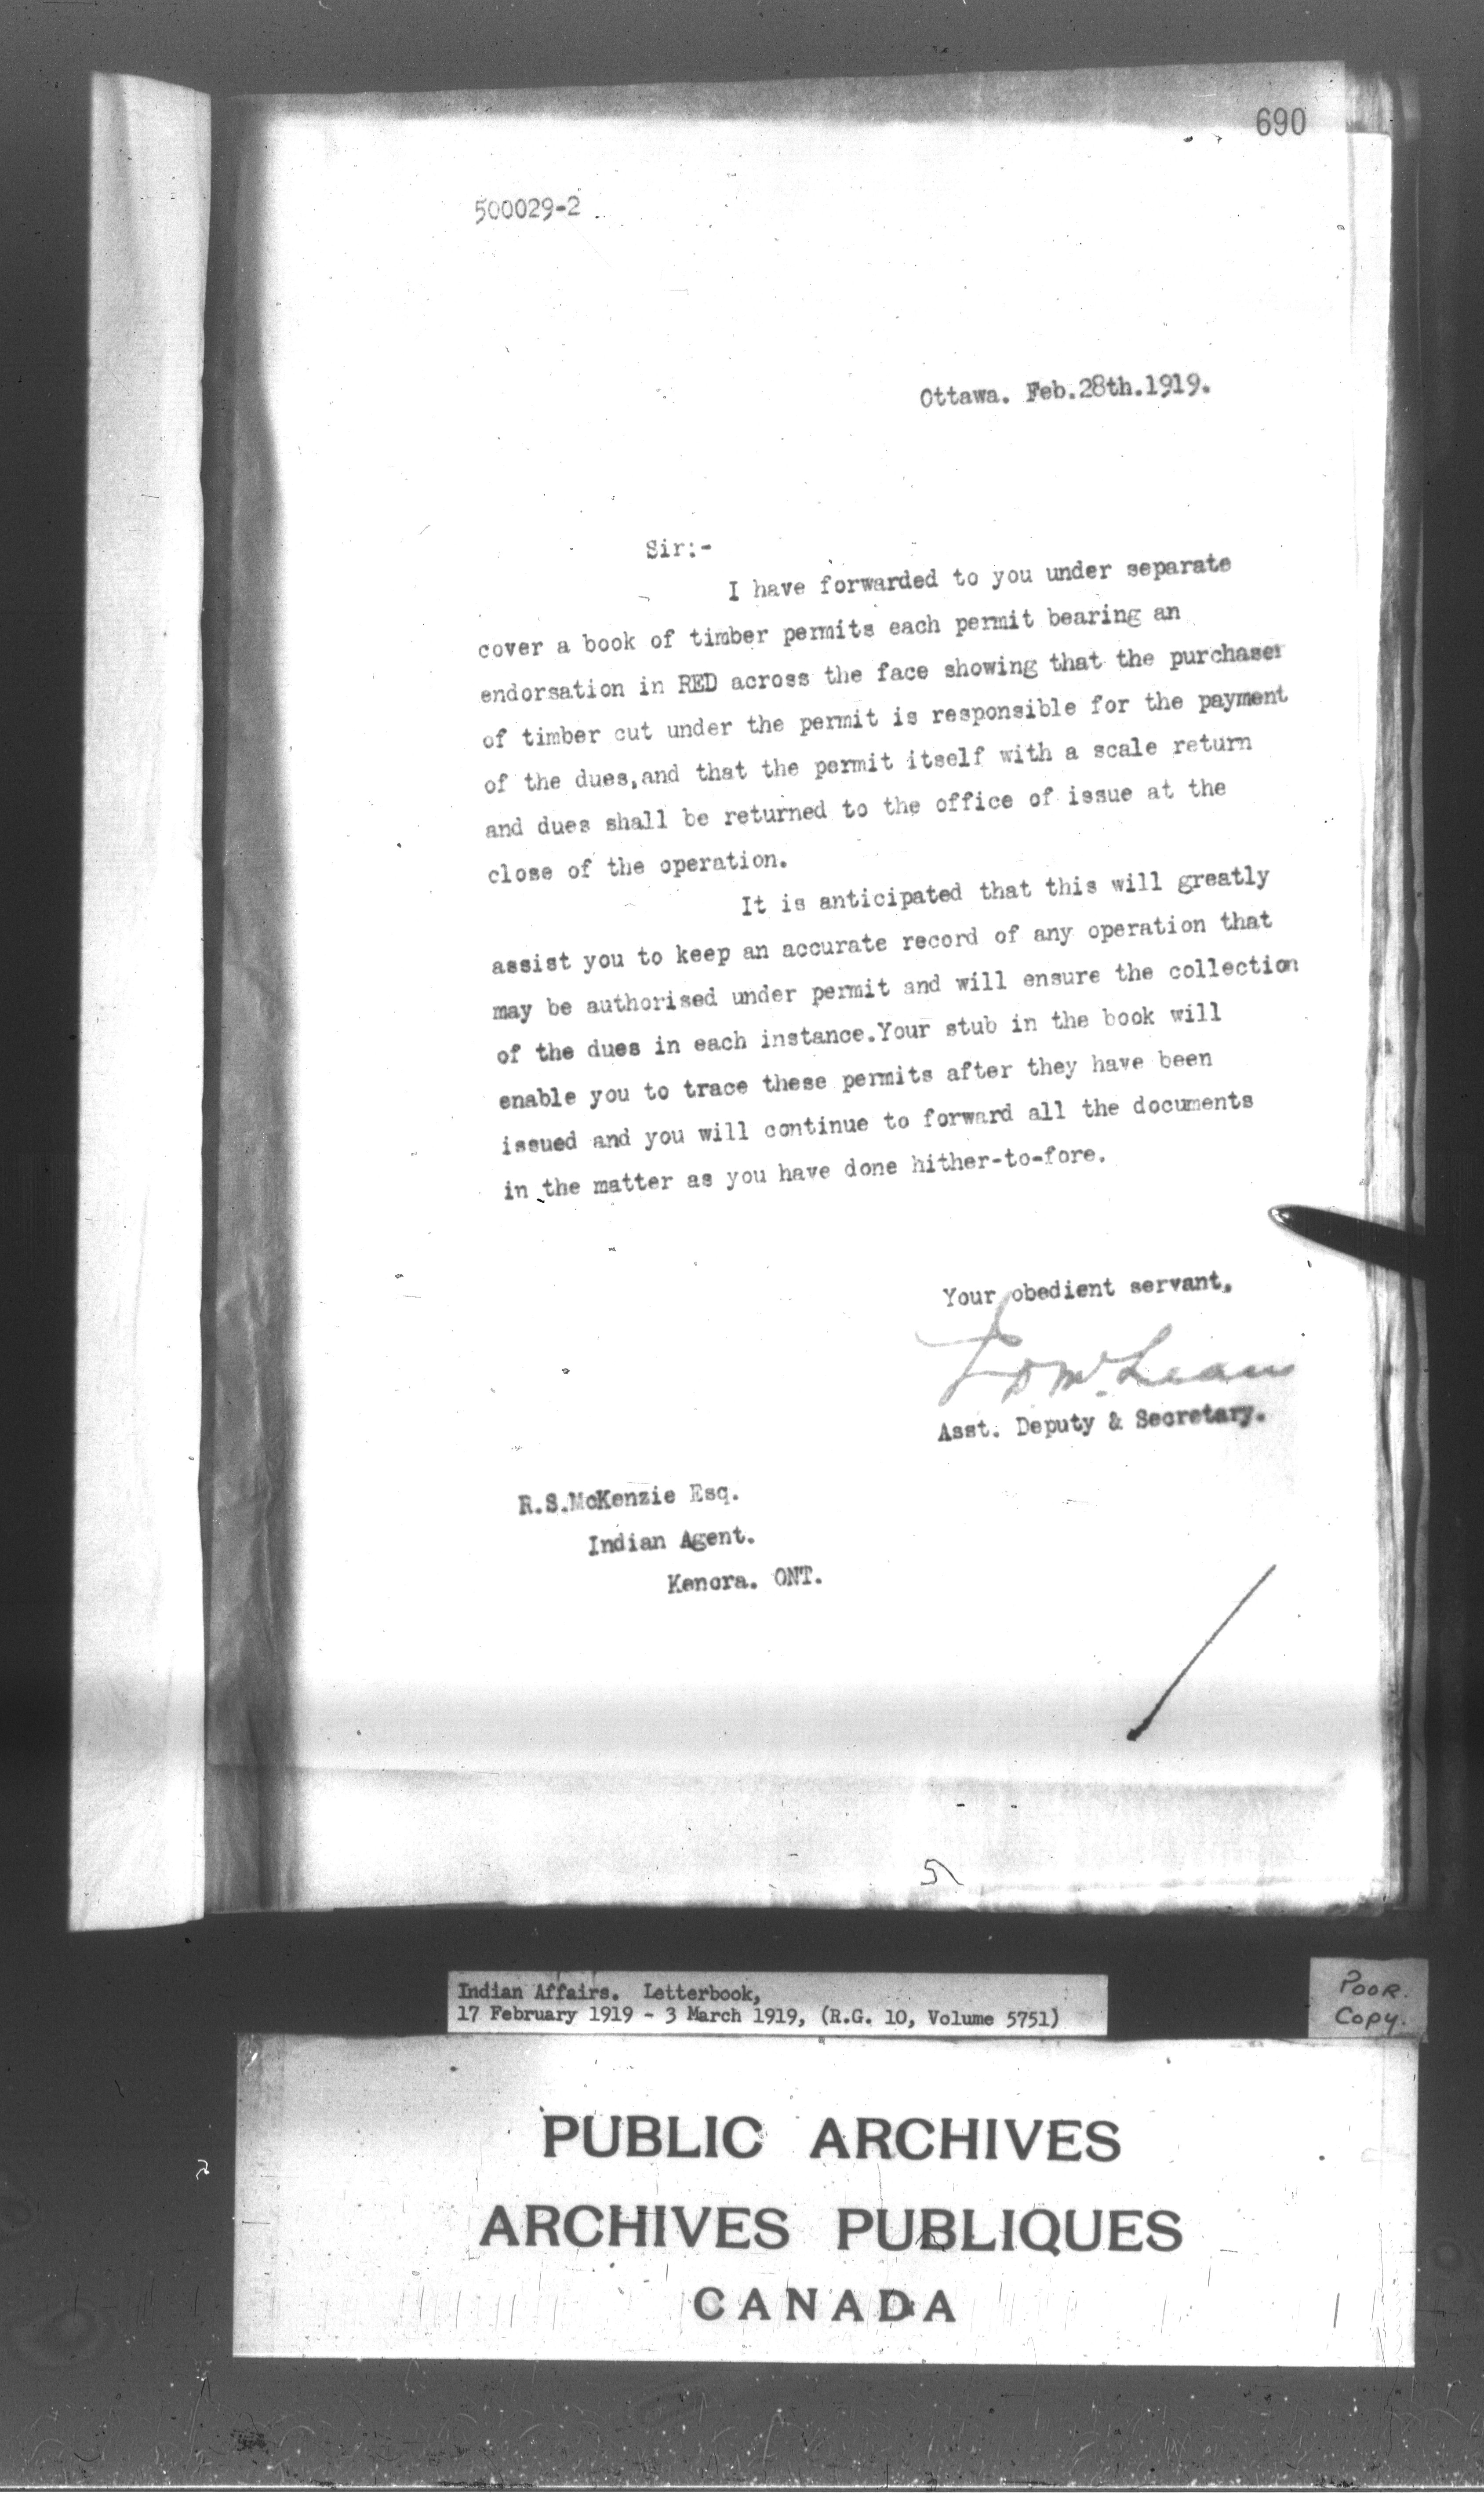 690
500029-2
Ottawa. Feb.28th.1919.
Sir:-
I have forwarded to you under separate
cover a book of timber permits each permit bearing an
endorsation in RED across the face showing that the purchaser
of timber cut under the permit is responsible for the payment
of the dues,and that the permit itself with a scale return
and dues shall be returned to the office of issue at the
close of the operation.
It is anticipated that this will greatly
assist you to keep an accurate record of any operation that
may be authorised under permit and will ensure the collection
of the dues in each instance.Your stub in the book will
enable you to trace these permits after they have been
issued and you will continue to forward all the documents
in the matter as you have done hither-to-fore.
Your obedient servant,
J D McLean
Asst. Deputy & Secretary.
R.S.McKenzie Esq.
Indian Agent.
Kenora. ONT.
Indian Affairs. Letterbook,
17 February 1919 - 3 March 1919, (R.G. 10, Volume 5751)
POOR.
Copy.
PUBLIC ARCHIVES
ARCHIVES PUBLIQUES
CANADA